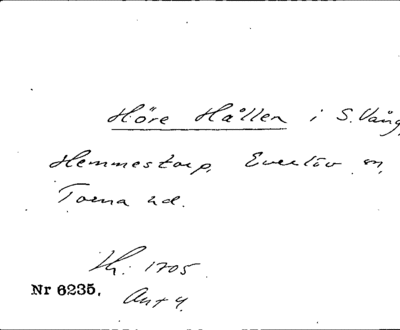 Höre Hallen i S. Vång,
Hemmestorp, Everlöv sn,
Torna hd.
Lh: 1705.
Nr 6235. Ant 4.